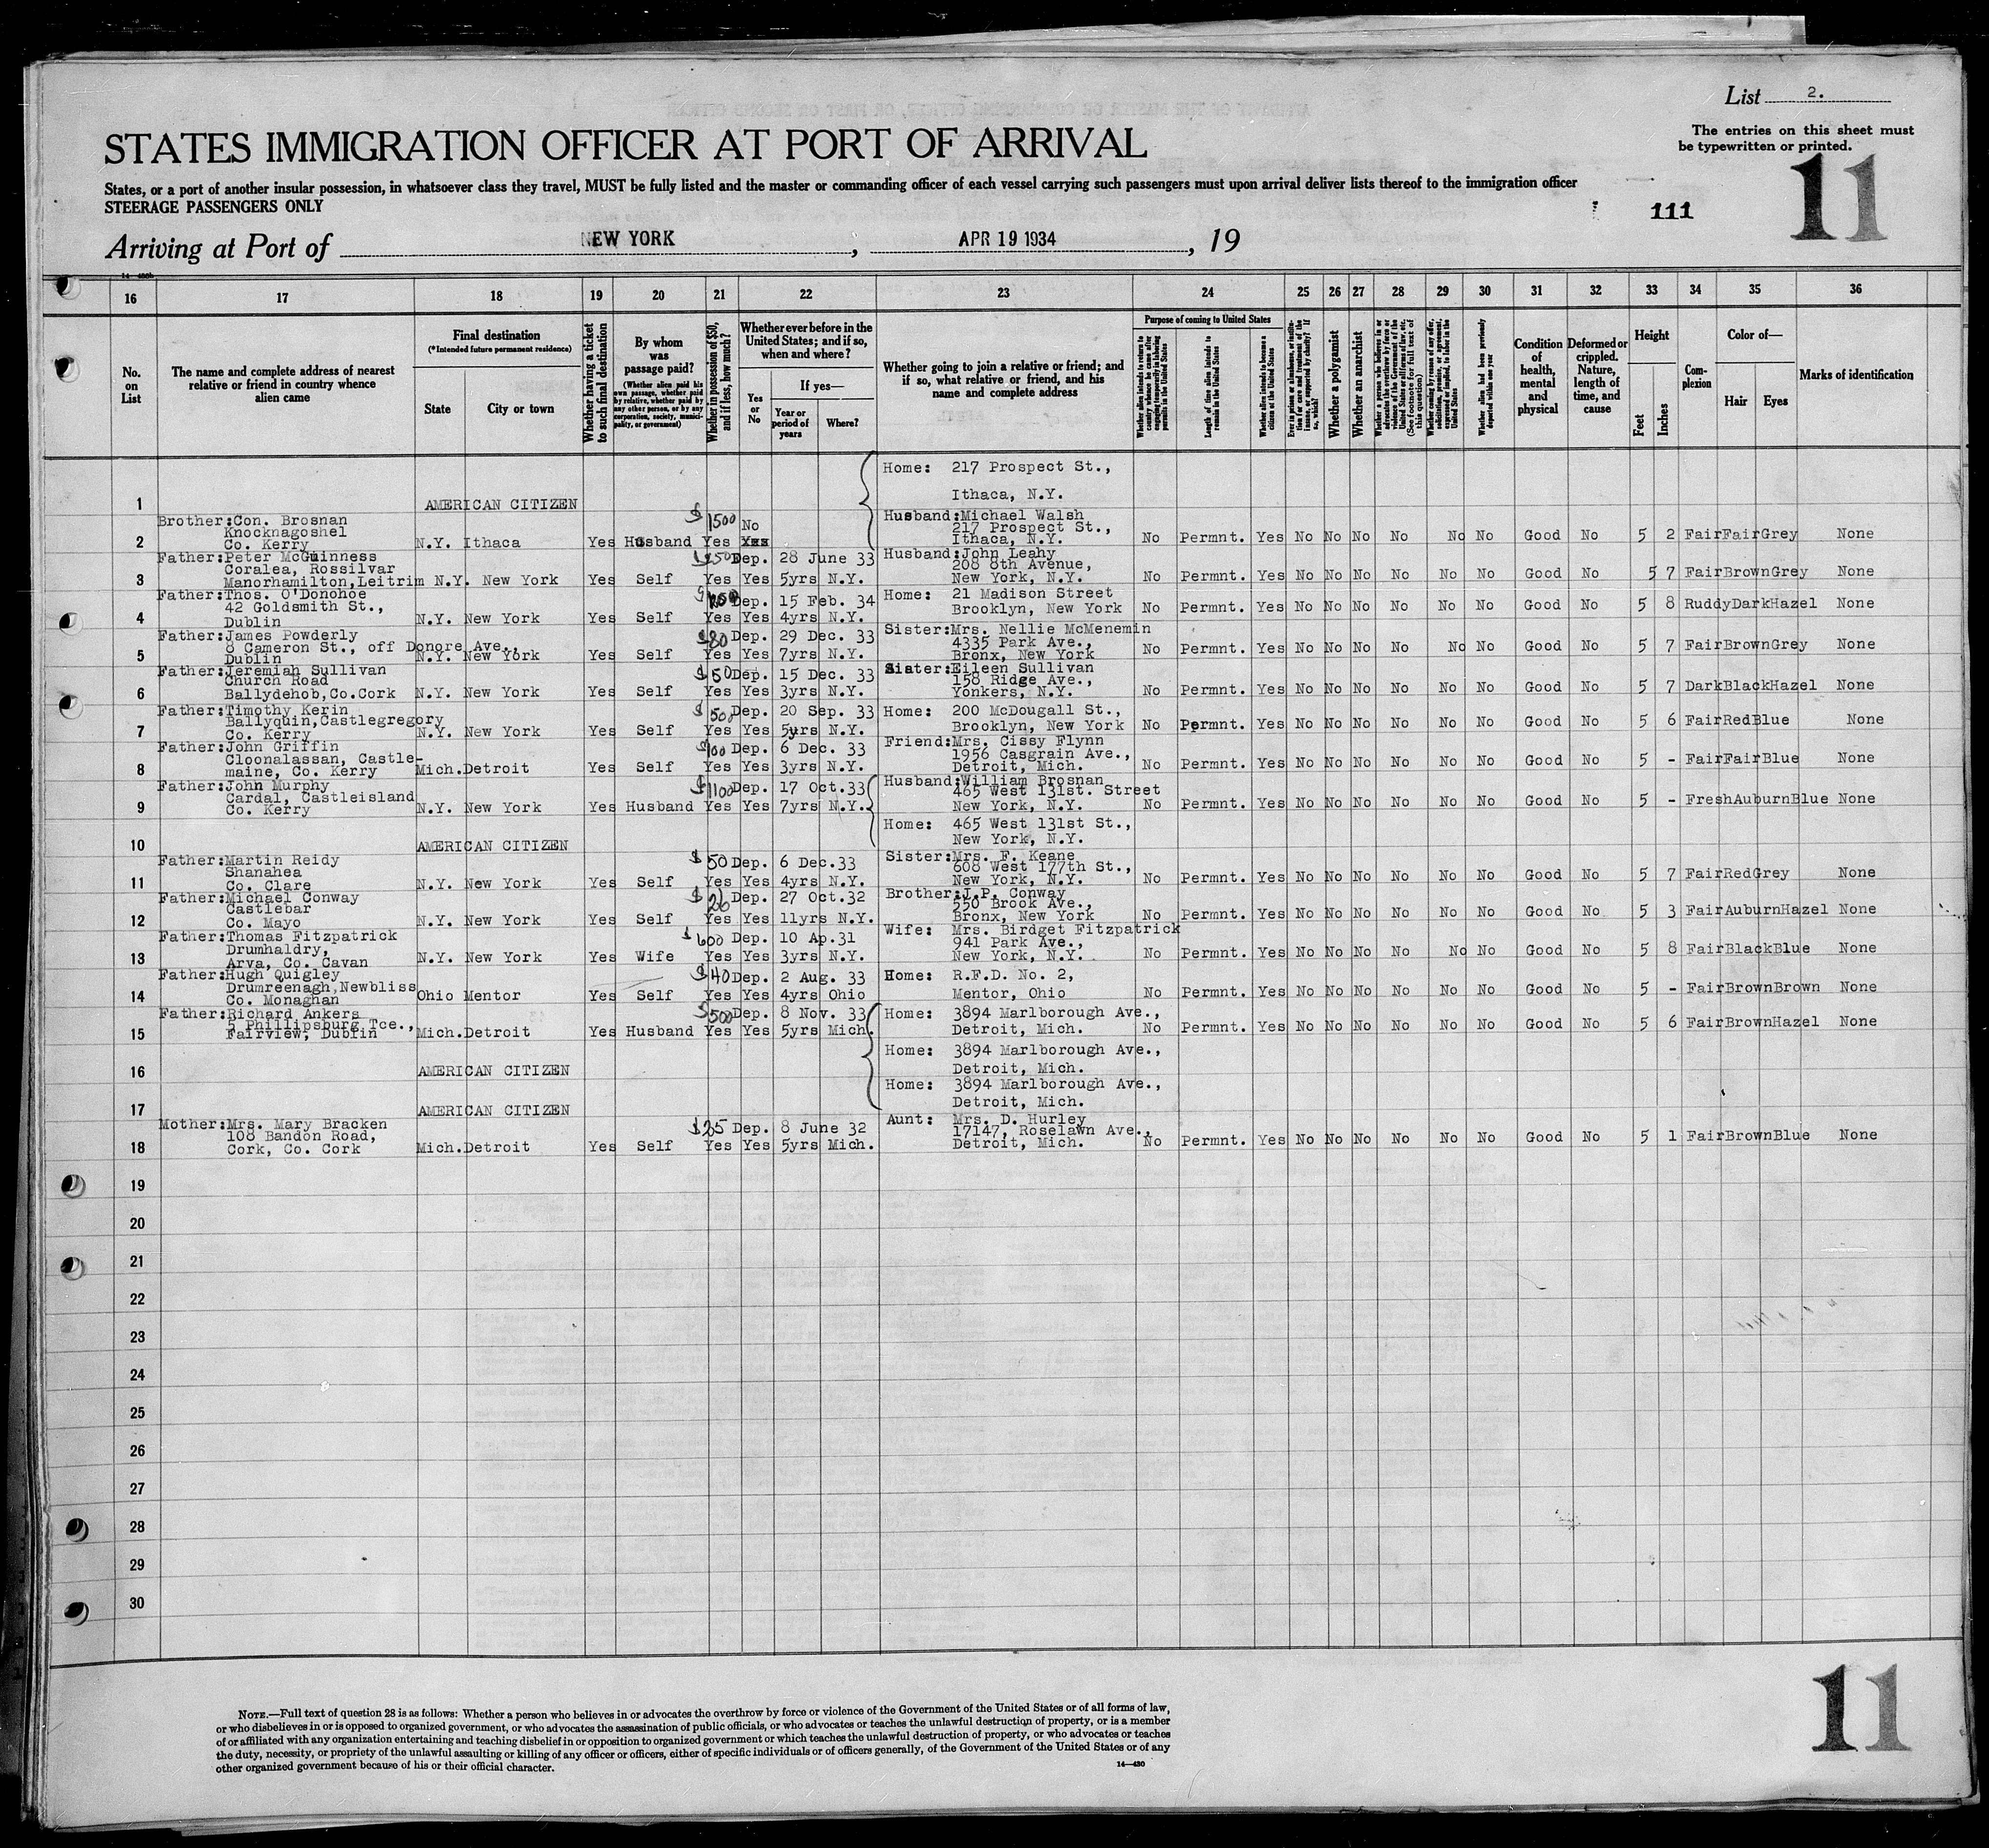 List 2.
The entries on this sheet must
be typewritten or printed.
11
STATES IMMIGRATION OFFICER AT PORT OF ARRIVAL
States, or a port of another insular possession, in whatsoever class they travel, MUST be fully listed and the master or commanding officer of each vessel carrying such passengers must upon arrival deliver lists thereof to the immigration officer
STEERAGE PASSENGERS ONLY
111
Arriving at Port of NEW YORK, APR 19 1934, 19
16 17 18 19 20 21 22 23 24 25 26 27 28 29 30 31 32 33 34 35 36
No. on List
The name and complete address of nearest relative or friend in country whence alien came
Final destination
(*Intended future permanent residence)
State
City or town
Whether having a ticket to such final destination
By whom was passage paid?
(Whether alien paid his own passage, whether paid by relative, whether paid by any other person, or by any corporation, society, municipality, or government)
Whether in possession of $50, and if less, how much?
Whether ever before in the United States; and if so, when and where?
Yes or No
If yes—
Year or period of years
Where?
Whether going to join a relative or friend; and if so, what relative or friend, and his name and complete address
Purpose of coming to United States
Length of time alien intends to remain in the United States
Whether alien intends to become a citizen of the United States
Whether a polygamist
Whether an anarchist
(See footnote for full text of this question)
Whether alien had been previously deported within one year
Condition of health, mental and physical
Deformed or crippled. Nature, length of time, and cause
Height
Feet
Inches
Complexion
Color of—
Hair
Eyes
Marks of identification
Home: 217 Prospect St.,
Ithaca, N.Y.
1 AMERICAN CITIZEN
Brother:Con. Brosnan $1500 No Husband:Michael Walsh
Knocknagoshel 217 Prospect St.,
2 Co. Kerry N.Y. Ithaca Yes Husband Yes Ithaca, N.Y. No Permnt. Yes No No No No No No Good No 5 2 Fair Fair Grey None
Father:Peter McGuinness Dep. 28 June 33 Husband:John Leahy
Coralea, Rossilvar 208 8th Avenue,
3 Manorhamilton,Leitrim N.Y. New York Yes Self Yes Yes 5yrs N.Y. New York, N.Y. No Permnt. Yes No No No No No No Good No 5 7 Fair Brown Grey None
Father:Thos. O'Donohoe Dep. 15 Feb. 34 Home: 21 Madison Street
42 Goldsmith St., Brooklyn, New York
4 Dublin N.Y. New York Yes Self Yes Yes 4yrs N.Y. No Permnt. Yes No No No No No No Good No 5 8 Ruddy Dark Hazel None
Father:James Powderly $80 Dep. 29 Dec. 33 Sister:Mrs. Nellie McMenemin
8 Cameron St., off Donore Ave., 4335 Park Ave.,
5 Dublin N.Y. New York Yes Self Yes Yes 7yrs N.Y. Bronx, New York No Permnt. Yes No No No No No No Good No 5 7 Fair Brown Grey None
Father:Jeremiah Sullivan $50 Dep. 15 Dec. 33 Sister:Eileen Sullivan
Church Road 158 Ridge Ave.,
6 Ballydehob,Co.Cork N.Y. New York Yes Self Yes Yes 3yrs N.Y. Yonkers, N.Y. No Permnt. Yes No No No No No No Good No 5 7 Dark Black Hazel None
Father:Timothy Kerin $500 Dep. 20 Sep. 33 Home: 200 McDougall St.,
Ballyquin,Castlegregory Brooklyn, New York
7 Co. Kerry N.Y. New York Yes Self Yes Yes 5yrs N.Y. No Permnt. Yes No No No No No No Good No 5 6 Fair Red Blue None
Father:John Griffin $100 Dep. 6 Dec. 33 Friend:Mrs. Cissy Flynn
Cloonalassan, Castle- 1956 Casgrain Ave.,
8 maine, Co. Kerry Mich. Detroit Yes Self Yes Yes 3yrs N.Y. Detroit, Mich. No Permnt. Yes No No No No No No Good No 5 - Fair Fair Blue None
Father:John Murphy $1100 Dep. 17 Oct.33 Husband:William Brosnan
Cardal, Castleisland 465 West 131st. Street
9 Co. Kerry N.Y. New York Yes Husband Yes Yes 7yrs N.Y. New York, N.Y. No Permnt. Yes No No No No No No Good No 5 - Fresh Auburn Blue None
Home: 465 West 131st St.,
10 AMERICAN CITIZEN New York, N.Y.
Father:Martin Reidy $50 Dep. 6 Dec.33 Sister:Mrs. F. Keane
Shanahea 608 West 177th St.,
11 Co. Clare N.Y. New York Yes Self Yes Yes 4yrs N.Y. New York, N.Y. No Permnt. Yes No No No No No No Good No 5 7 Fair Red Grey None
Father:Michael Conway $26 Dep. 27 Oct.32 Brother:J.P. Conway
Castlebar 550 Brook Ave.,
12 Co. Mayo N.Y. New York Yes Self Yes Yes 11yrs N.Y. Bronx, New York No Permnt. Yes No No No No No No Good No 5 3 Fair Auburn Hazel None
Father:Thomas Fitzpatrick $600 Dep. 10 Ap.31 Wife: Mrs. Birdget Fitzpatrick
Drumhaldry, 941 Park Ave.,
13 Arva, Co. Cavan N.Y. New York Yes Wife Yes Yes 3yrs N.Y. New York, N.Y. No Permnt. Yes No No No No No No Good No 5 8 Fair Black Blue None
Father:Hugh Quigley $40 Dep. 2 Aug. 33 Home: R.F.D. No. 2,
Drumreenagh,Newbliss Mentor, Ohio
14 Co. Monaghan Ohio Mentor Yes Self Yes Yes 4yrs Ohio No Permnt. Yes No No No No No No Good No 5 - Fair Brown Brown None
Father:Richard Ankers $500 Dep. 8 Nov. 33 Home: 3894 Marlborough Ave.,
5 Phillipsburg Tce., Detroit, Mich.
15 Fairview, Dublin Mich. Detroit Yes Husband Yes Yes 5yrs Mich. No Permnt. Yes No No No No No No Good No 5 6 Fair Brown Hazel None
Home: 3894 Marlborough Ave.,
16 AMERICAN CITIZEN Detroit, Mich.
Home: 3894 Marlborough Ave.,
17 AMERICAN CITIZEN Detroit, Mich.
Mother:Mrs. Mary Bracken $25 Dep. 8 June 32 Aunt: Mrs. D. Hurley
108 Bandon Road, 17147, Roselawn Ave.,
18 Cork, Co. Cork Mich. Detroit Yes Self Yes Yes 5yrs Mich. Detroit, Mich. No Permnt. Yes No No No No No No Good No 5 1 Fair Brown Blue None
19
20
21
22
23
24
25
26
27
28
29
30
NOTE.—Full text of question 28 is as follows: Whether a person who believes in or advocates the overthrow by force or violence of the Government of the United States or of all forms of law,
or who disbelieves in or is opposed to organized government, or who advocates the assassination of public officials, or who advocates or teaches the unlawful destruction of property, or is a member
of or affiliated with any organization entertaining and teaching disbelief in or opposition to organized government or which teaches the unlawful destruction of property, or who advocates or teaches
the duty, necessity, or propriety of the unlawful assaulting or killing of any officer or officers, either of specific individuals or of officers generally, of the Government of the United States or of any
other organized government because of his or their official character.
14—430
11